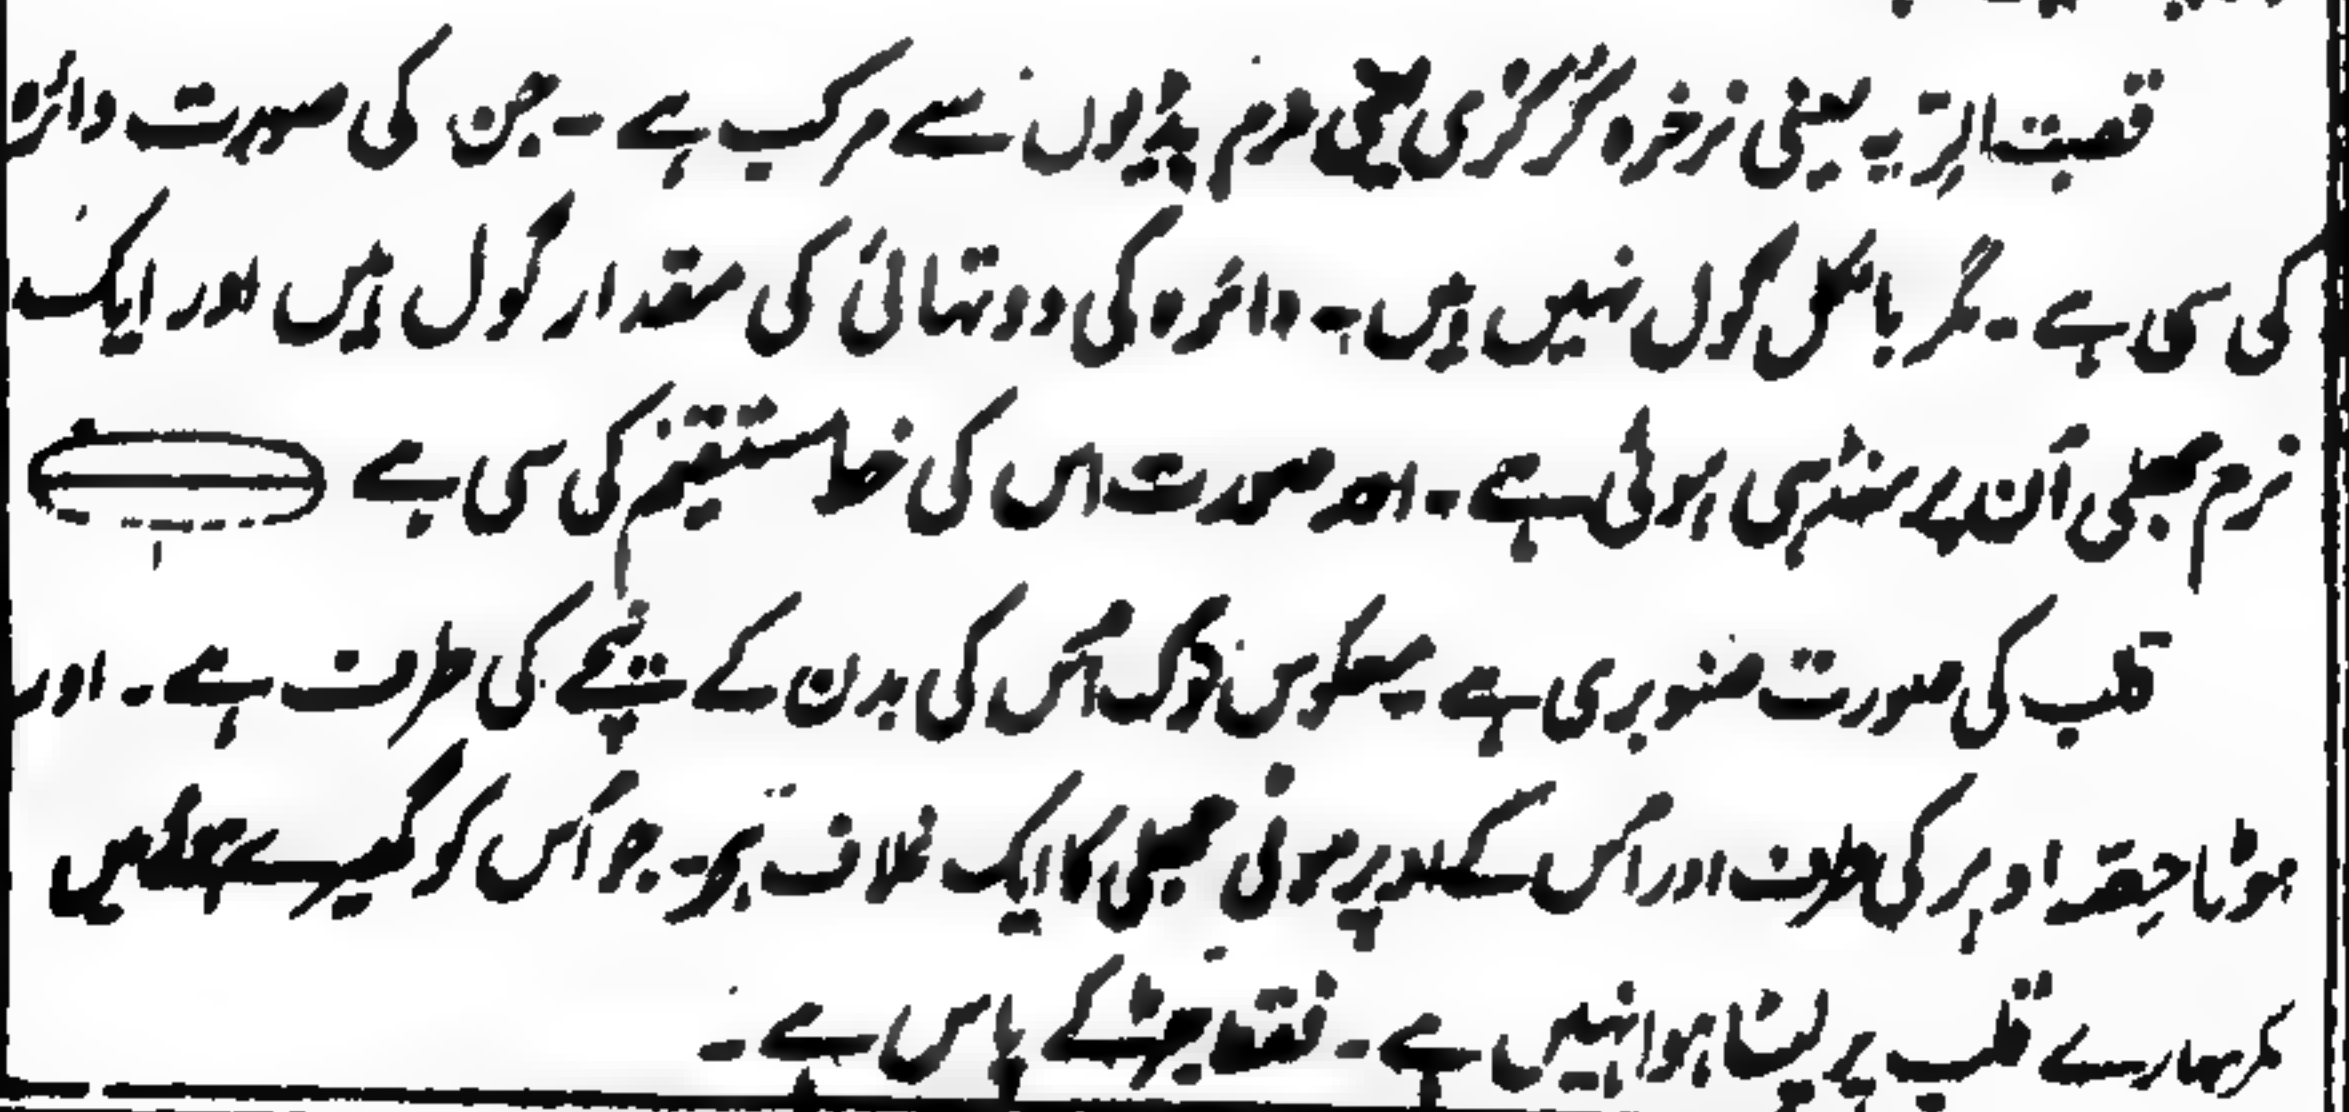 قصبۃ الریہ یعنی نرخرہ کرکری یعنی نرم ہڈیوں سے مرکب ہے ۔ جن کی صورت دائرہ
کی سی ہے ۔ مگر بالکل گول نہیں ہیں ۔ دائرہ کی دو تہائی کی مقدار گول ہیں اور ایک
نرم جھلی اُن پر منڈہی ہوئی ہے ۔ اور صورت اس کی خط مستقیم کی سی ہے
قلب کی صورت صنوبری ہے معکوس نوک اُس کی بدن کے نیچے کی طرف ہے ۔ اور
موٹا حصّہ اوپر کی طرف اور اُس کے اوپر موٹی جھلی کا ایک غلاف ہے ۔ جو اُس کو گھیرے ہوئے ہیں
مگر سارے قلب پر لپٹا ہوا نہیں ہے ۔ فقط جڑ کے پاس ہے ۔